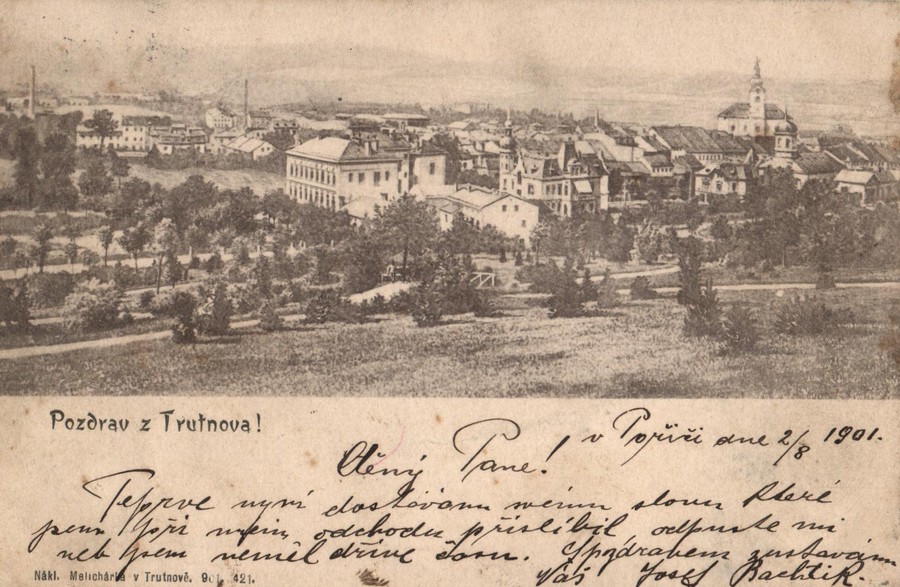 Pozdrav z Trutnova!
v Poříčí dne 2/8 1901.
Ctěný Pane!
Teprve nyní dostávám svému slovu které
jsem při mém odchodu přislíbil odpuste mi
neb jsem neměl dříve času. S pozdravem zustávám
Váš Josef Bachtik.
Nákl. Melichárka v Trutnově. 901. 421.